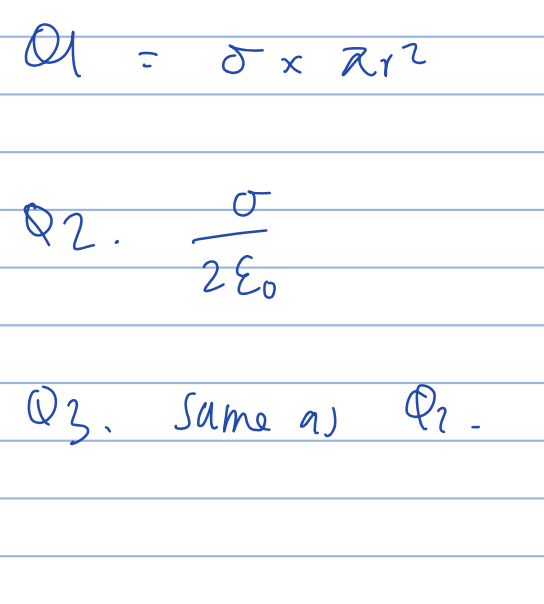 Q1 = σ × πr²
Q2. σ/2ε₀
Q3. Same as Q2.